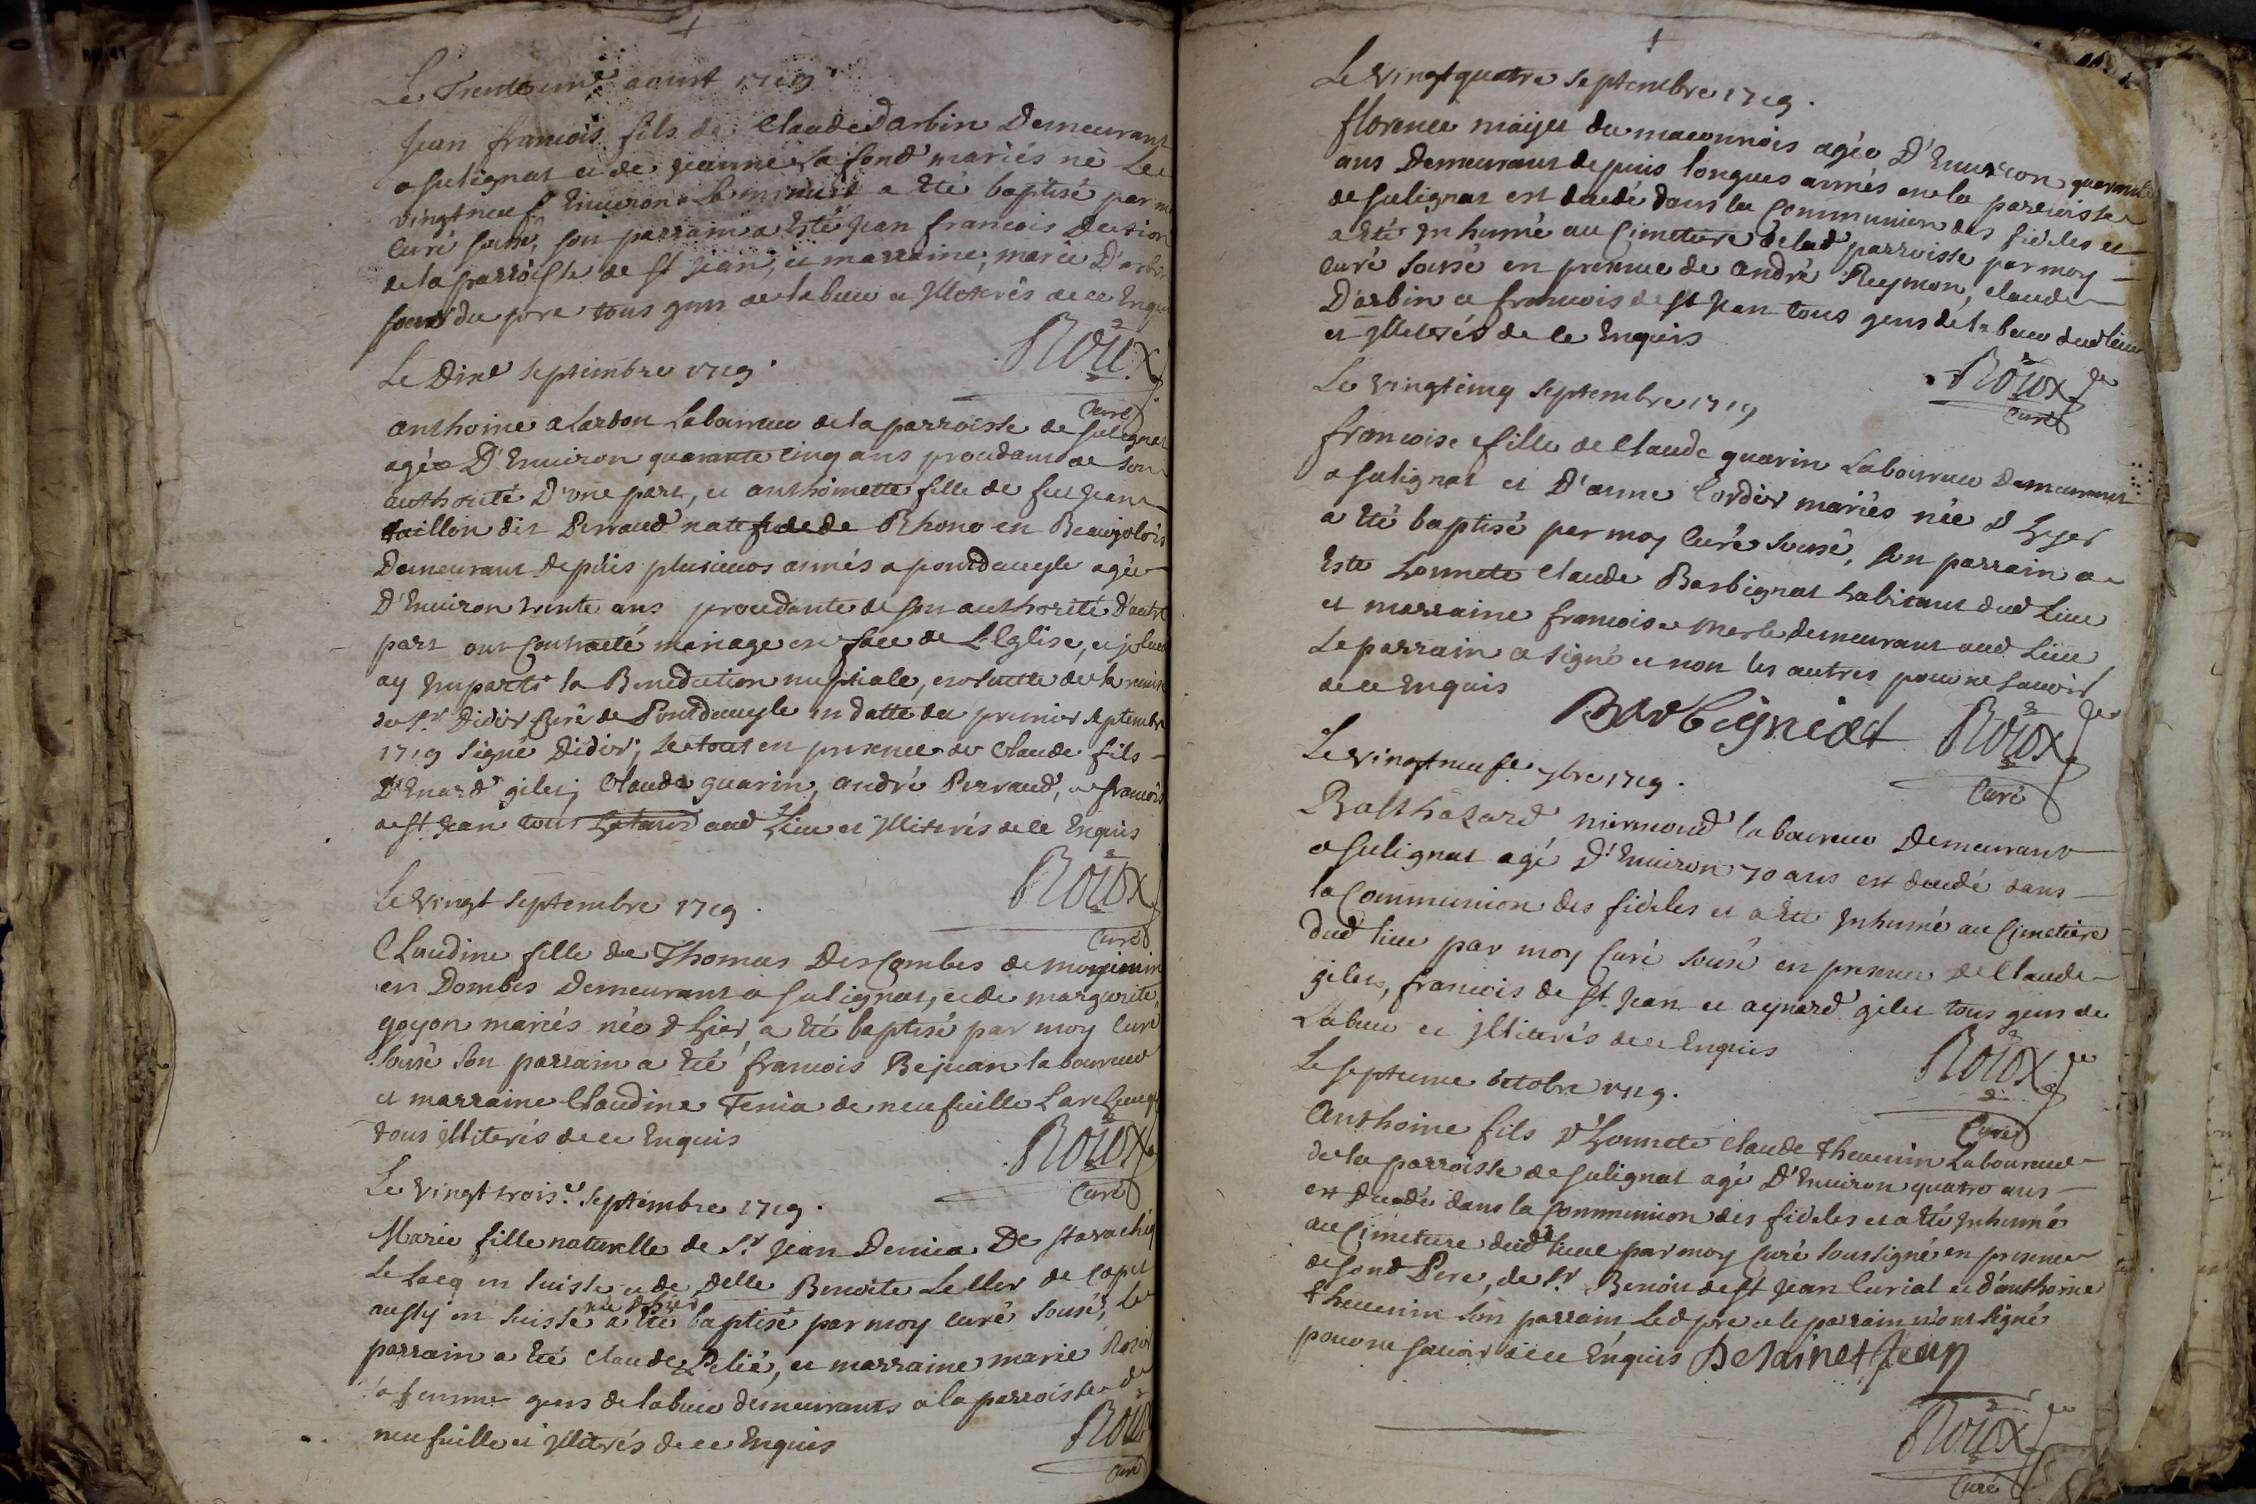 Le Trente une aoust 1719
Jean francois fils de Claude Darbin Demeurant
a sulignat et de jeanne la fond mariés né Le
vingt neuf Enuiron Le minuit a Eté baptisé par moy
Curé sousé, son parrain a Esté Jean francois
de la parroisse de st jean, et marraine, marie D'arbin
soeur du pere tous gens de labeur et jlliterés de ce Enquis
Roux
Curé
Le Dixe septembre 1719
anthoine alardon Laboureur de la parroisse de sulignat
agée D'Enuiron quarante cinq ans procedant de son
authorité D'vne part, et anthoinette fille de feu jean
taillon dit Perraud natif de Rhono en Beaujolois
Demeurant depuis plusieurs annés a pontdeuyle agée
D'Enuiron trente ans procedante de son authorité D'autre
part ont Contracté mariage en face de L'Eglise, et je leur
ay jmparti la Benediction nuptiale, en suitte de la remise
de sr Didier Curé de Pontdeuyle en datte du premier septembre
1719 signé Didier, le tout en presence de Claude fils
D'Enard gilet, Claude guarin, andré Perraud, et francois
de st jean tous aud Lieu et jlliterés de ce Enquis
Roux
Curé
Le vingt septembre 1719.
Claudine fille de Thomas DesCombes de
en Dombes Demeurant a sulignat, et de margurite
goyon mariés née d'hier, a Eté baptisé par moy Curé
sousé son parrain a Eté francois Bejuan laboureur
et marraine Claudine Fenia de neufuille
tous jlliterés de ce Enquis
Roux
Curé
Le vingt trois.e septembre 1719.
Marie fille naturelle de sr Jean
Le en suisse et de Delle Benoite de
née d'hier
aussy en suisse a Eté baptisé par moy curé sousé, Le
parrain a Eté Claude Pelié, et marraine marie
sa femme gens de labeur demeurants a la parroisse de
neufuille et jlliterés de ce Enquis
Roux
Curé
Le vingt quatre septembre 1719.
florence du maconnois agée D'Enuiron quarante
ans Demeurant depuis longues annés en la parroisse
de sulignat est decedé dans la Communion des fideles et
a Eté jnhumé au Cimetiere de lad parroisse par moy
curé sousé en presence de andré Reymon, claude
D'arbin et francois de st jean tous gens de labeur dud lieu
et jlliterés de ce Enquis
Roux
Curé
Le vingt cinq septembre 1719
francoise fille de Claude guarin Laboureur Demeurant
a sulignat et D'anne Cordier mariés née d'hyer
a Eté baptisé par moy Curé sousé, son parrain a
Este honnete Claude Barbignat habitant dud Lieu
et marraine francoise Merle demeurant aud Lieu,
Le parrain a signé et non les autres pour ne scauoir
de ce Enquis
Barbigniat Roux
Curé
Le vingt neufe 7bre 1719.
Balthazard mirmond laboureur Demeurant
a sulignat agé D'Enuiron 70 ans est decedé dans
la Communion des fideles et a Eté jnhumé au Cimetiere
dud lieu par moy Curé sousé en presence de Claude
gilet, francois de st. jean et aynard gilet tous gens de
Labeur et jlliterés de ce Enquis
Roux
Curé
Le septieme octobre 1719.
Anthoine fils d'honnete Claude Theuenin Laboureur
de la parroisse de sulignat agé D'Enuiron quatro ans
est decedé dans la Communion des fideles et a Eté jnhumé
au Cimetiere dud lieu par moy Curé soussigné en presence
de sond Pere, de sr Benoit de st jean Curial et d'anthoine
Theuenin son parrain, Led pere et le parrain n'ont signé
pour ne scauoir de ce Enquis De Sainct jean
Roux
Curé